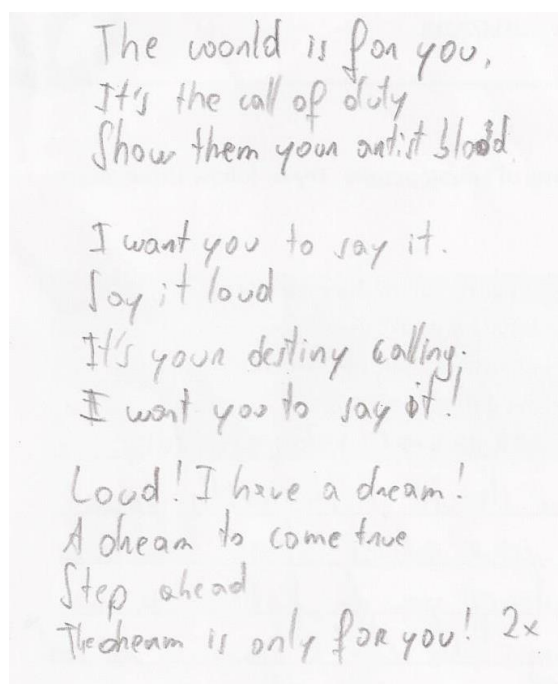 The world is for you,
It's the call of duty
Show them your artist blood.
I want you to say it.
Say it loud
It's your destiny calling.
I want you to say it!
Loud! I have a dream!
A dream to come true
Step ahead
The dream is only for you! 2x